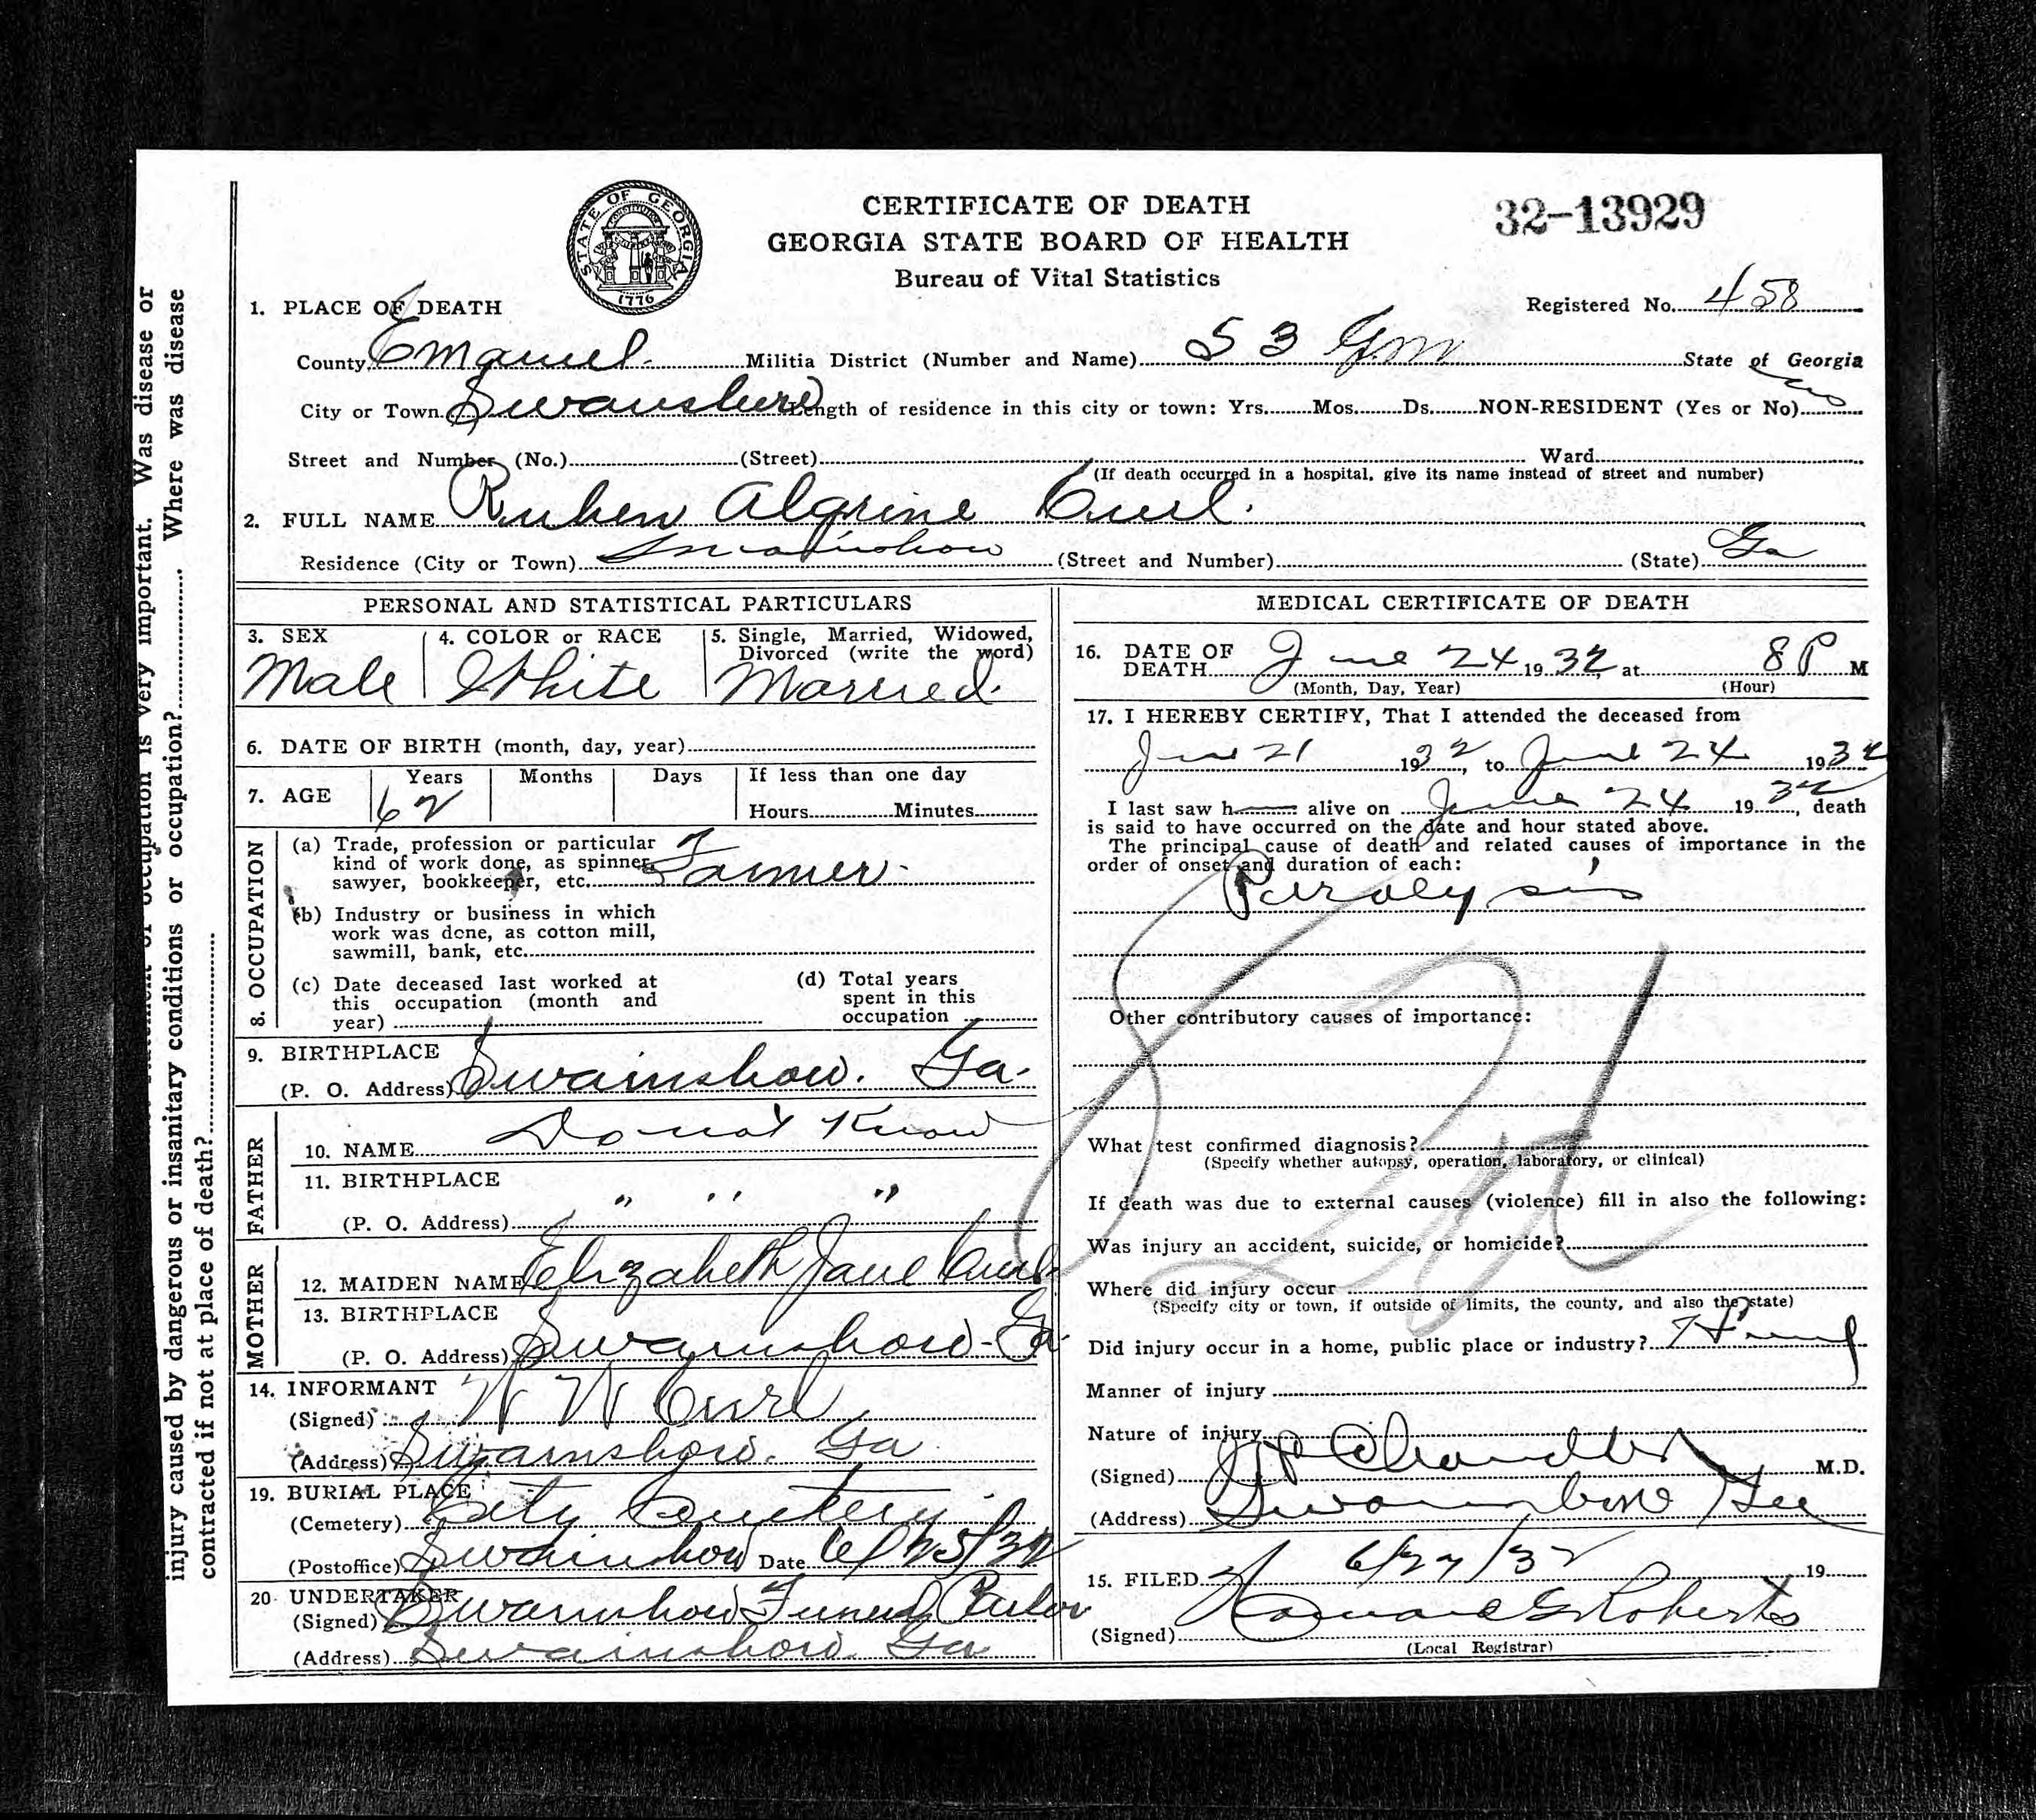 CERTIFICATE OF DEATH
GEORGIA STATE BOARD OF HEALTH
Bureau of Vital Statistics
32-13929
STATE OF GEORGIA
CONSTITUTION
1776
Registered No. 458
1. PLACE OF DEATH
County Emanuel Militia District (Number and Name) 53 Gm State of Georgia
City or Town Swansboro Length of residence in this city or town: Yrs. Mos. Ds. NON-RESIDENT (Yes or No)
Street and Number (No.) (Street) Ward
(If death occurred in a hospital, give its name instead of street and number)
2. FULL NAME Ruben Algrine Curl.
Residence (City or Town) Swainsboro (Street and Number) (State) Ga
PERSONAL AND STATISTICAL PARTICULARS
3. SEX Male
4. COLOR or RACE White
5. Single, Married, Widowed, Divorced (write the word) Married.
6. DATE OF BIRTH (month, day, year)
7. AGE Years 62 Months Days If less than one day
Hours Minutes
8. OCCUPATION
(a) Trade, profession or particular
kind of work done, as spinner,
sawyer, bookkeeper, etc. Farmer.
(b) Industry or business in which
work was done, as cotton mill,
sawmill, bank, etc.
(c) Date deceased last worked at
this occupation (month and
year)
(d) Total years
spent in this
occupation
9. BIRTHPLACE
(P. O. Address) Swainsboro. Ga.
FATHER
10. NAME Do not Know
11. BIRTHPLACE
(P. O. Address) " " "
MOTHER
12. MAIDEN NAME Elizabeth Jane Curl
13. BIRTHPLACE
(P. O. Address) Swainsboro - Ga.
14. INFORMANT
(Signed) W W Curl
(Address) Swainsboro. Ga
19. BURIAL PLACE
(Cemetery) City Cemetery
(Postoffice) Swainsboro Date 6/25/32
20. UNDERTAKER
(Signed) Swainsboro Funeral Parlor
(Address) Swainsboro. Ga
MEDICAL CERTIFICATE OF DEATH
16. DATE OF
DEATH June 24 1932, at 8 P M
(Month, Day, Year) (Hour)
17. I HEREBY CERTIFY, That I attended the deceased from
June 21 1932, to June 24 1932
I last saw h alive on June 24 1932, death
is said to have occurred on the date and hour stated above.
The principal cause of death and related causes of importance in the
order of onset and duration of each:
Paralysis
Other contributory causes of importance:
What test confirmed diagnosis?
(Specify whether autopsy, operation, laboratory, or clinical)
If death was due to external causes (violence) fill in also the following:
Was injury an accident, suicide, or homicide?
Where did injury occur
(Specify city or town, if outside of limits, the county, and also the state)
Did injury occur in a home, public place or industry?
Manner of injury
Nature of injury
(Signed) Chandler M.D.
(Address) Swainsboro
15. FILED 6/27/32 19
(Signed) Howard G Roberts
(Local Registrar)
occupation is very important. Was disease or
injury caused by dangerous or insanitary conditions or occupation? Where was disease
contracted if not at place of death?